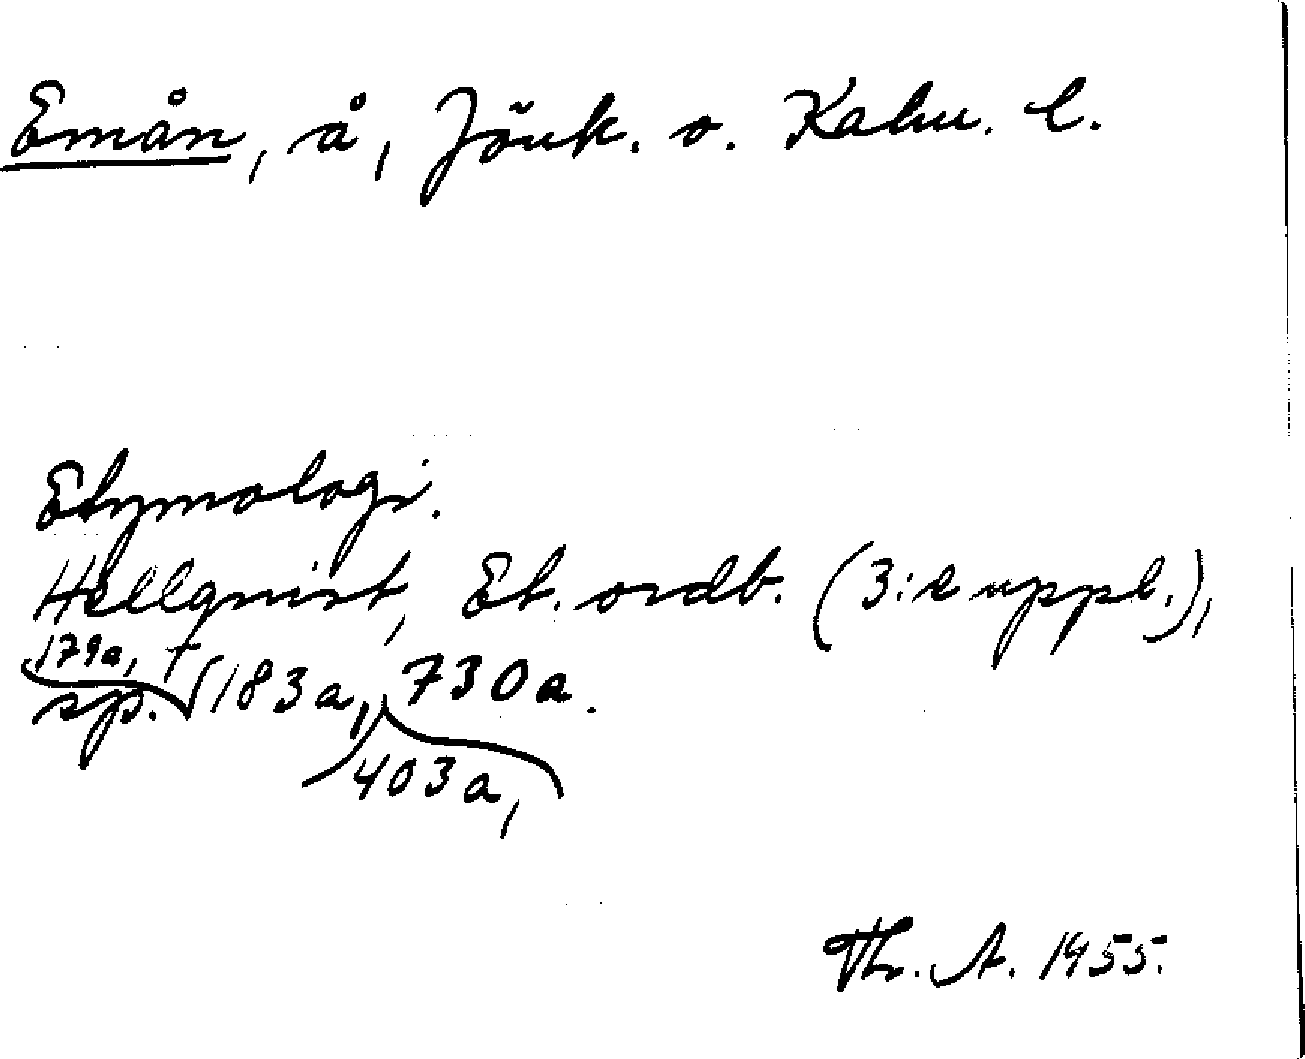 Emån, å, Jönk. o. Kalm. l.
Etymologi.
Hellqvist, Et. ordb. (3:e uppl.),
sp. 179a, 183a, 403a, 730a.
Th. A. 1955.